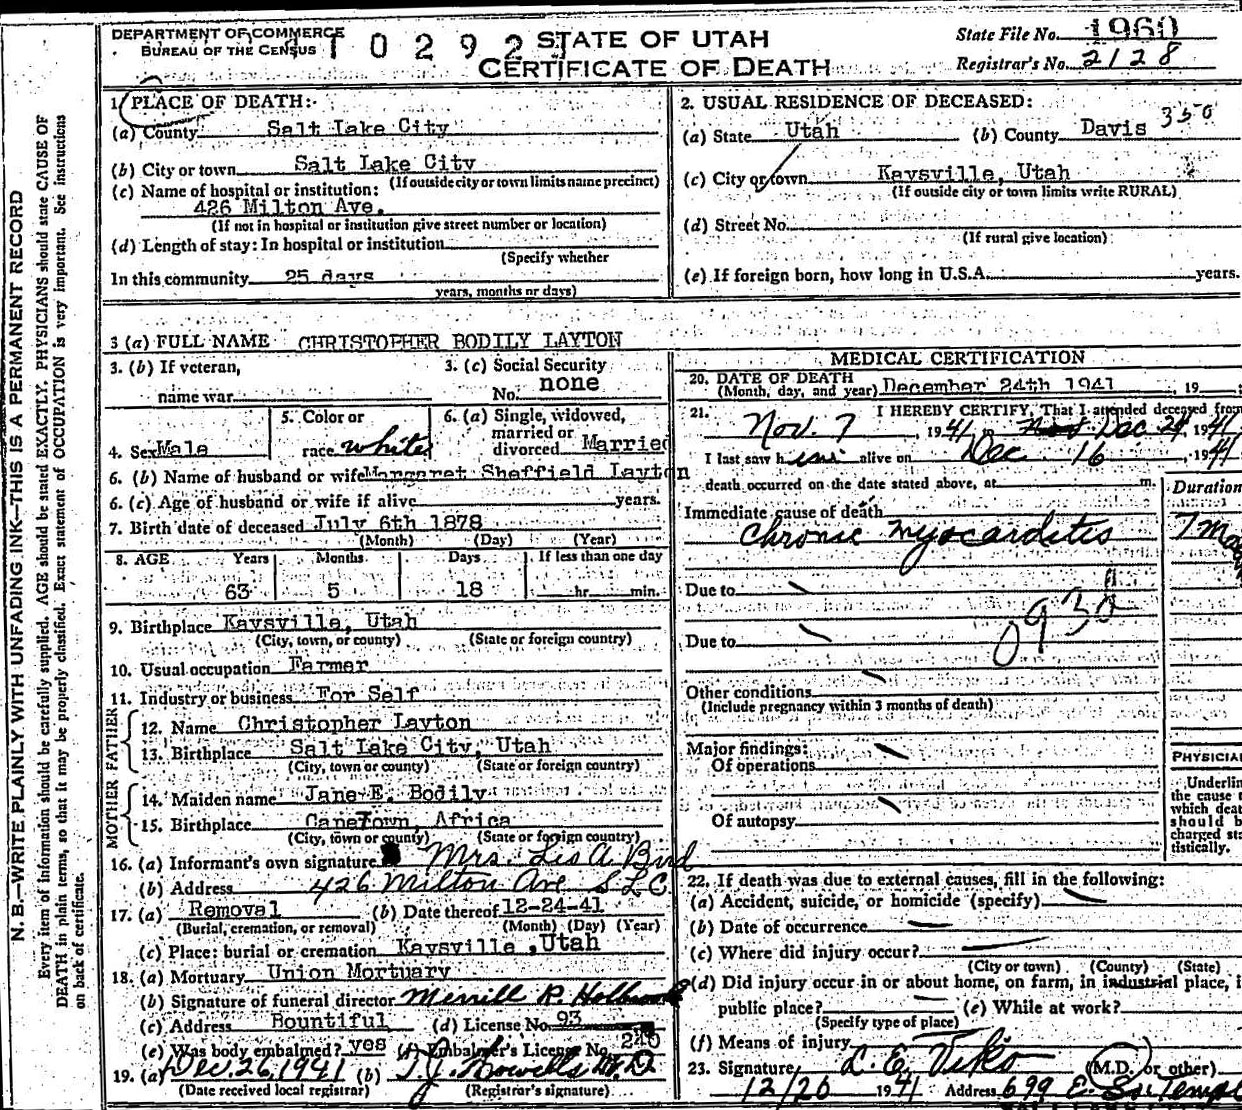 DEPARTMENT OF COMMERCE
BUREAU OF THE CENSUS
STATE OF UTAH
CERTIFICATE OF DEATH
State File No. 1960
Registrar's No. 2128
N. B.—WRITE PLAINLY WITH UNFADING INK—THIS IS A PERMANENT RECORD
Every item of information should be carefully supplied. AGE should be stated EXACTLY. PHYSICIANS should state CAUSE OF
DEATH in plain terms, so that it may be properly classified. Exact statement of OCCUPATION is very important. See instructions
on back of certificate.
1. PLACE OF DEATH:
(a) County Salt Lake City
(b) City or town Salt Lake City
(If outside city or town limits name precinct)
(c) Name of hospital or institution:
426 Milton Ave.
(If not in hospital or institution give street number or location)
(d) Length of stay: In hospital or institution
(Specify whether
In this community 25 days
years, months or days)
2. USUAL RESIDENCE OF DECEASED:
(a) State Utah (b) County Davis 350
(c) City or town Kaysville, Utah
(If outside city or town limits write RURAL)
(d) Street No.
(If rural give location)
(e) If foreign born, how long in U.S.A. years.
3 (a) FULL NAME CHRISTOPHER BODILY LAYTON
3. (b) If veteran,
name war
3. (c) Social Security
No. none
4. Sex Male
5. Color or
race white
6. (a) Single, widowed,
married or
divorced Married
6. (b) Name of husband or wife Margaret Sheffield Layton
6. (c) Age of husband or wife if alive years.
7. Birth date of deceased July 6th 1878
(Month) (Day) (Year)
8. AGE Years Months Days If less than one day
63 5 18 hr. min.
9. Birthplace Kaysville, Utah
(City, town, or county) (State or foreign country)
10. Usual occupation Farmer
11. Industry or business For Self
FATHER
12. Name Christopher Layton
13. Birthplace Salt Lake City, Utah
(City, town or county) (State or foreign country)
MOTHER
14. Maiden name Jane E. Bodily
15. Birthplace CapeTown, Africa
(City, town or county) (State or foreign country)
16. (a) Informant's own signature Mrs. Leo A Bird
(b) Address 426 Milton Ave S.L.C.
17. (a) Removal (b) Date thereof 12-24-41
(Burial, cremation, or removal) (Month) (Day) (Year)
(c) Place: burial or cremation Kaysville, Utah
18. (a) Mortuary Union Mortuary
(b) Signature of funeral director Merrill R Holbrook
(c) Address Bountiful (d) License No. 93
(e) Was body embalmed? yes (f) Embalmer's License No. 240
19. (a) Dec. 26, 1941 (b) T.J. Howells M.D.
(Date received local registrar) (Registrar's signature)
MEDICAL CERTIFICATION
20. DATE OF DEATH
(Month, day, and year) December 24th 1941, 19
21. I HEREBY CERTIFY, That I attended deceased from
Nov. 7, 1941 to Dec 24, 1941
I last saw him alive on Dec 16, 1941
death occurred on the date stated above, at m.
Duration
Immediate cause of death
Chronic myocarditis
Due to
Due to
Other conditions
(Include pregnancy within 3 months of death)
Major findings:
Of operations
Of autopsy
PHYSICIAN
Underline
the cause
which death
should be
charged sta-
tistically.
22. If death was due to external causes, fill in the following:
(a) Accident, suicide, or homicide (specify)
(b) Date of occurrence
(c) Where did injury occur?
(City or town) (County) (State)
(d) Did injury occur in or about home, on farm, in industrial place, i
public place? (e) While at work?
(Specify type of place)
(f) Means of injury
23. Signature L. E. Viko (M.D. or other)
12/26 1941 Address 699 E. So. Temple